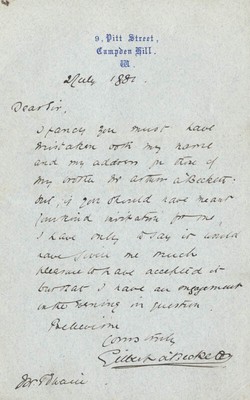 9, Pitt Street,
Campden Hill,
W.
2 July 1881.
Dear Sir,
I fancy you must have
mistaken both my name
and my address for those of
my brother Mr Arthur à Beckett
but, if you should have meant
your kind invitation for me,
I have only to say it would
have given me much
pleasure to have accepted it
but that I have an engagement
on the evening in question
Believe me
Yours truly
Gilbert à Beckett